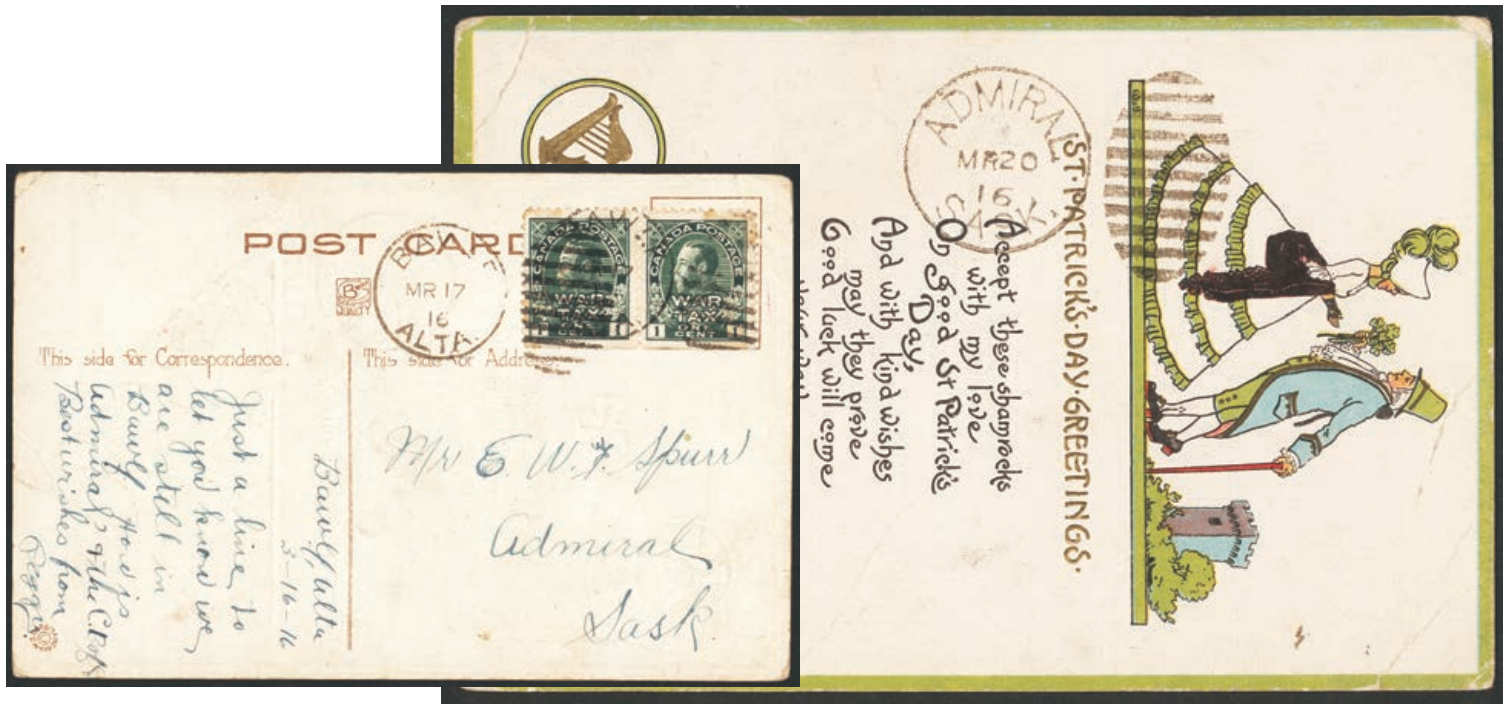 POST CARD
B S
QUALITY
MR 17
16
ALTA
CANADA POSTAGE
WAR
TAX
1 CENT 1
CANADA POSTAGE
WAR
TAX
1 CENT 1
This side for Correspondence.
This side for Address.
Bawlf, Alta
3-16-16
Just a line to
let you know we
are still in
Bawlf How is
Admiral & the
Best wishes from
Mr E. W. F. Spurr
Admiral
Sask
ADMIRAL
MR 20
16
SASK.
ST. PATRICK'S · DAY · GREETINGS ·
Accept these shamrocks
with my love
On good St Patrick's
Day,
And with kind wishes
may they prove
Good luck will come
your way